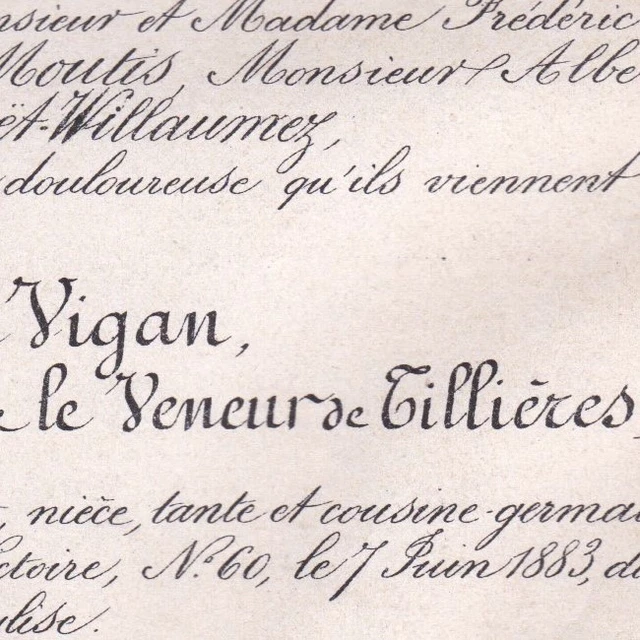 nsieur et Madame Frédéric
Moutis, Monsieur Albe
ët-Willaumez,
douloureuse qu'ils viennent
Vigan,
le Veneur de Tillières,
nièce, tante et cousine-germai
ctoire, N.º 60, le 7 Juin 1883, da
glise.